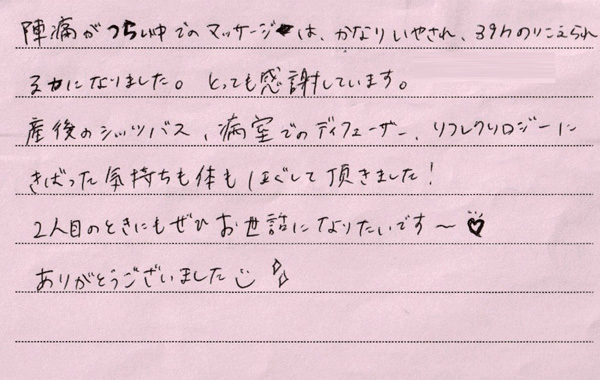 陣痛がつらい中でのマッサージは、かなりいやされ、39hのりこえられ
る力になりました。 とっても感謝しています。
産後のシッツバス、病室でのディフューザー、リフレクソロジーに
きばった気持ちも体もほぐして頂きました!
2人目のときにもぜひお世話になりたいです〜♡
ありがとうございました